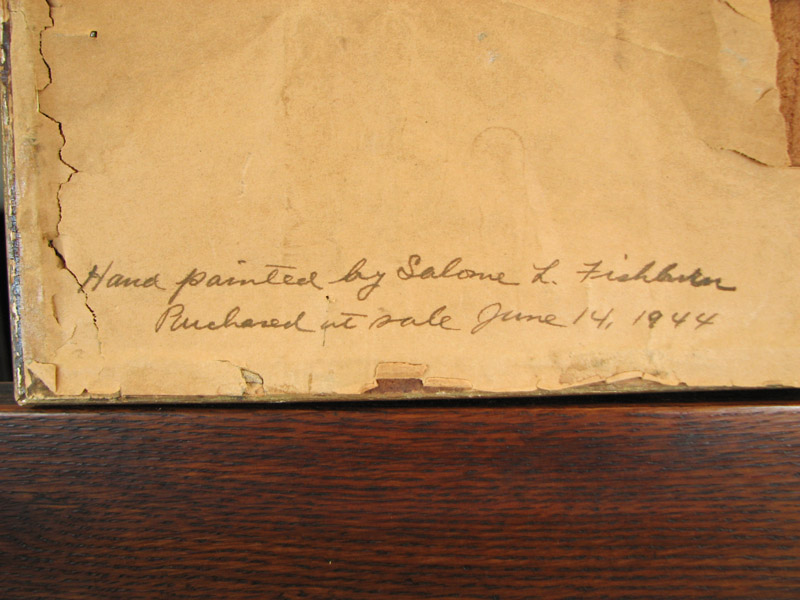 Hand painted by Salome L. Fishburn
Purchased at sale June 14, 1944